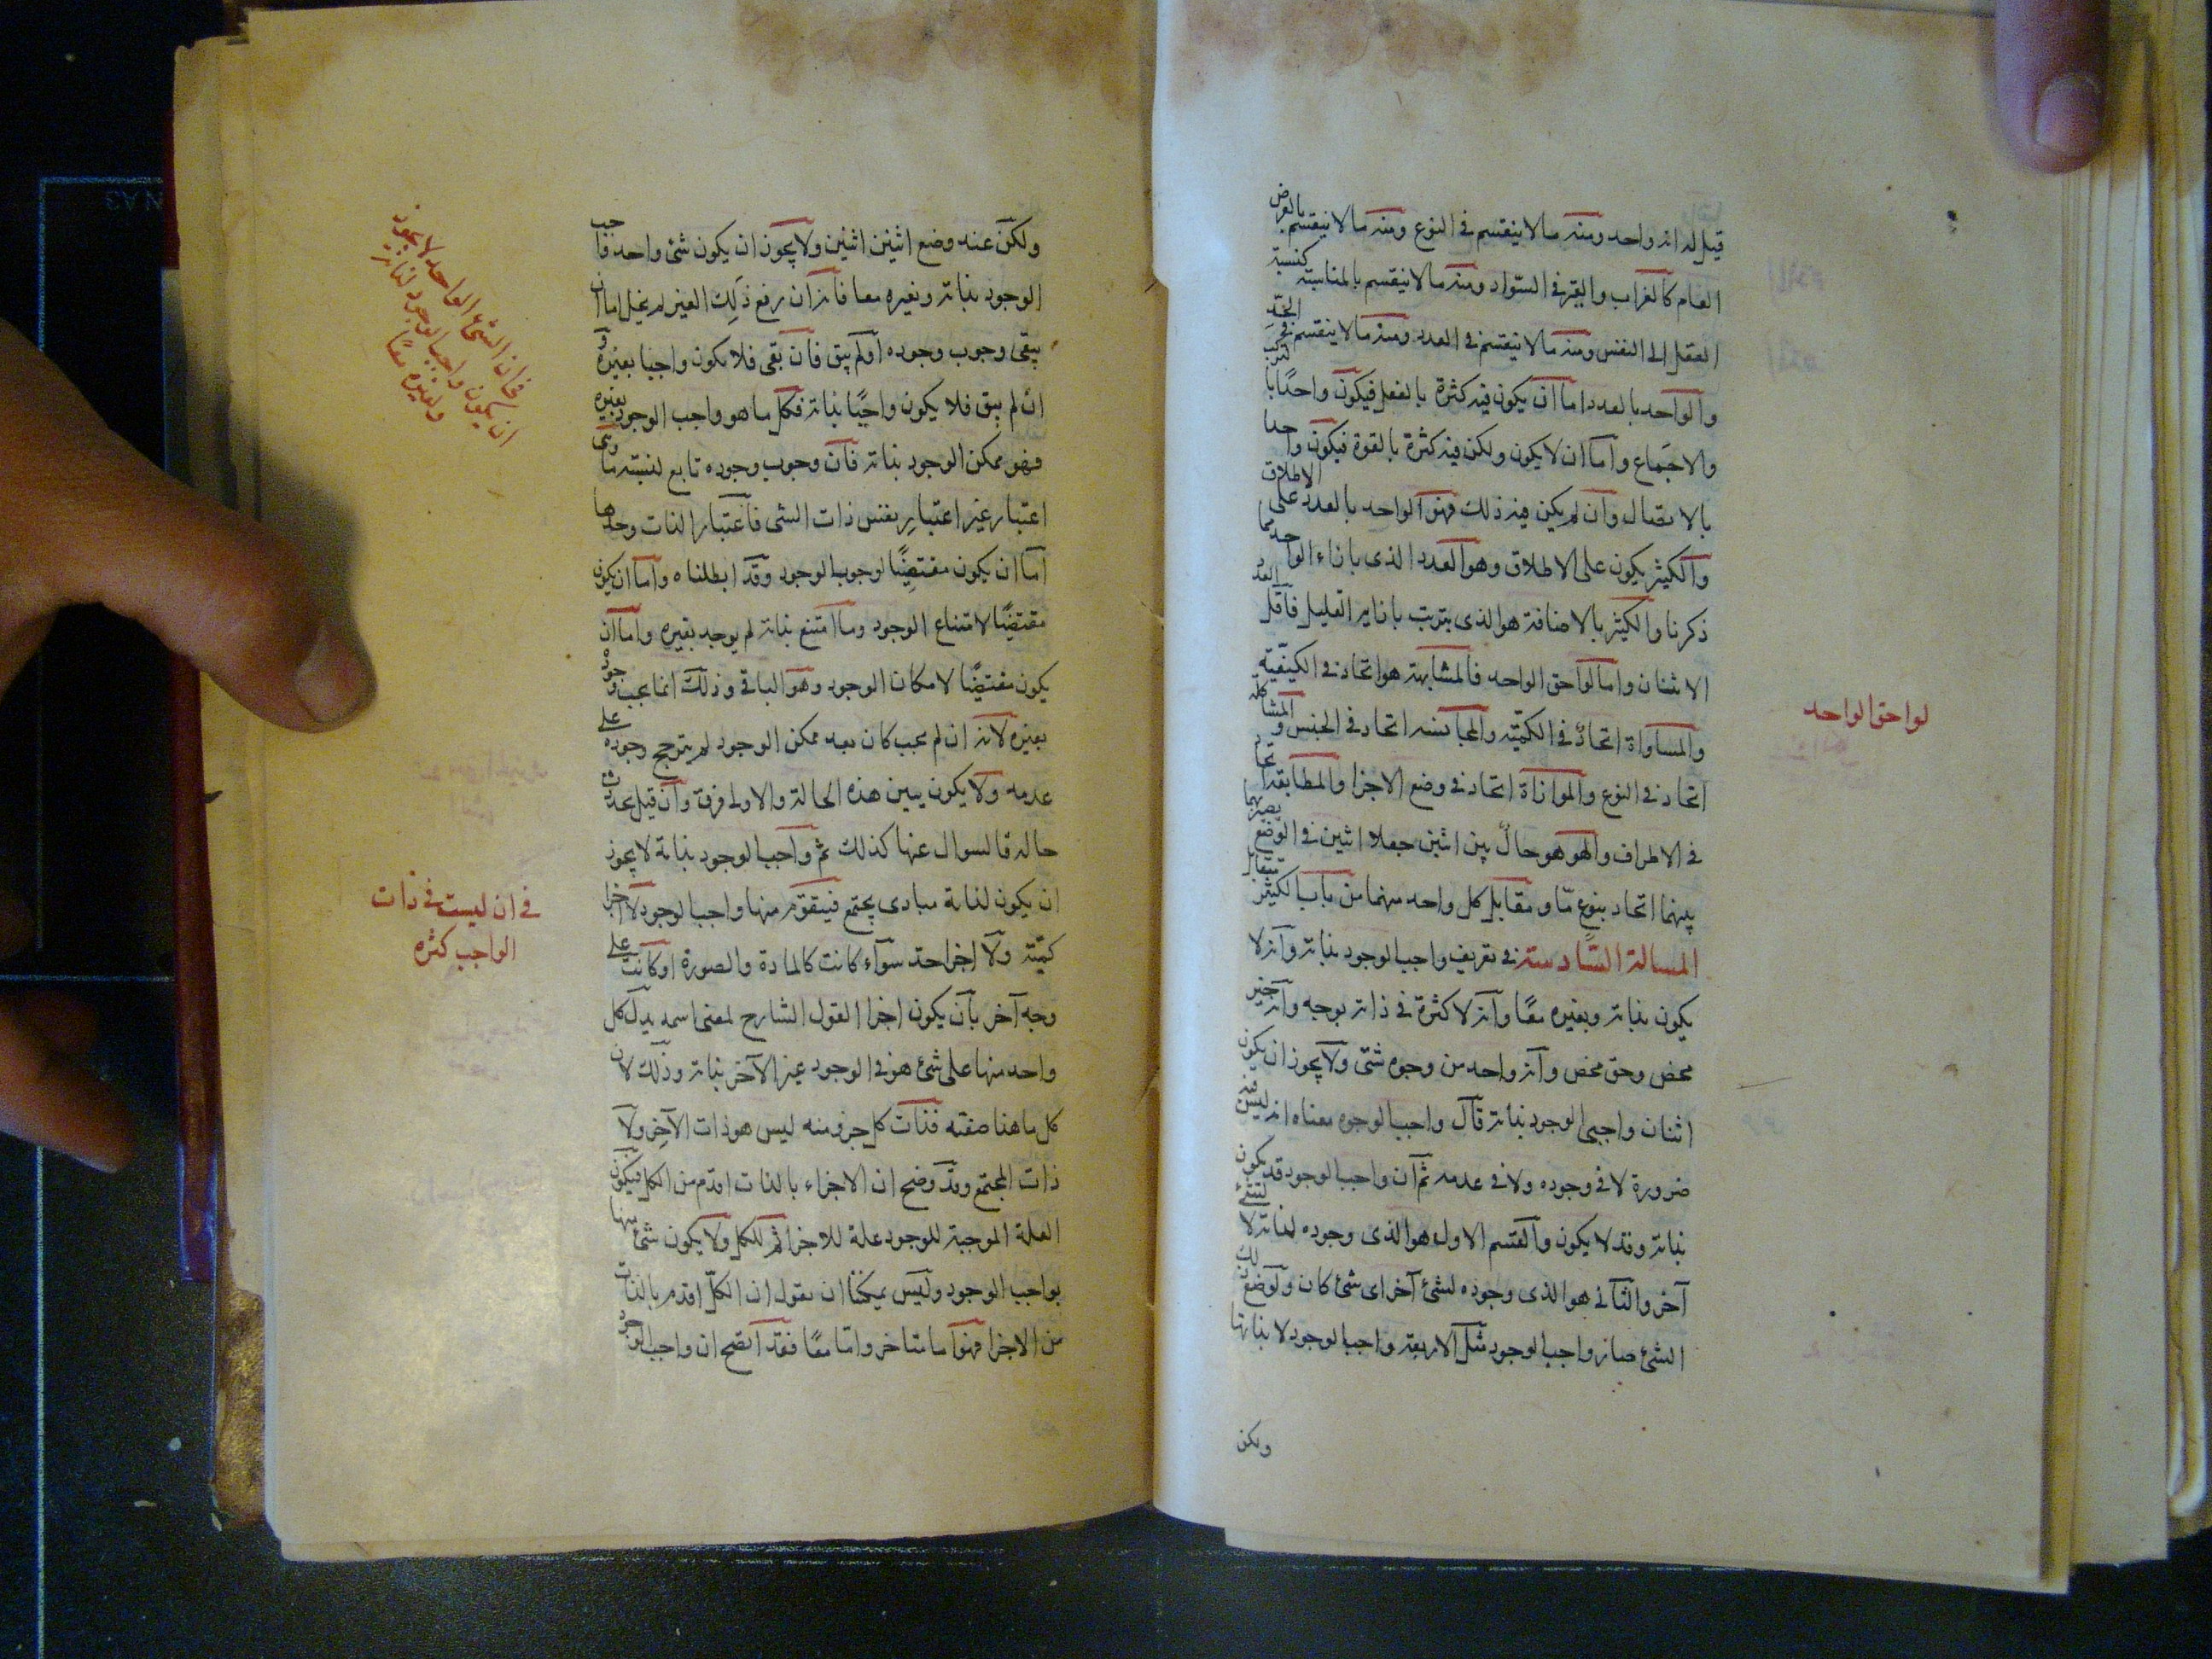 قيل له انه واحد ومنه ما لا ينقسم فى النوع ومنه ما لا ينقسم بالعرض
العام كالغراب والقير فى السّواد ومنه ما لا ينقسم بالمناسبة كنسبة
العقل الى النفس ومنه ما لا ينقسم فى العدد ومنه ما لا ينقسم فى الحدّ
والواحد بالعدد اما ان يكون فيه كثرة بالفعل فيكون واحدًا بالتركيب
والاجتماع واما ان لا يكون ولكن فيه كثرة بالقوة فيكون واحدا
بالاتصال وان لم يكن فيه ذلك فهو الواحد بالعدد على الاطلاق
والكثير يكون على الاطلاق وهو العدد الذى بازاء الواحد كما
ذكرنا والكثير بالاضافة هو الذى يترتب بازايه القليل فاقل العدد
الاثنان واما لواحق الواحد فالمشابهة هو اتحاد فى الكيفيّة
والمساواة اتحادٌ فى الكميّه والمجانسه اتحاد فى الجنس والمشاكله
اتحاد فى النوع والموازاة اتحاد فى وضع الاجزا والمطابقه اتحاد
فى الاطراف والهو هو حالٌ بين اثنين جعلا اثنين فى الوضع يصير بهما
بينهما اتحاد بنوع مّا ومقابل كل واحد منهما من باب الكثير متقابل
المسالة السّادسة فى تعريف واجب الوجود بذاته وانه لا
يكون بذاته وبغيره معًا وانه لا كثرة فى ذاته بوجه وانه خير
محض وحق محض وانه واحد من وجوه شتى ولا يجوز ان يكون
اثنان واجبى الوجود بذاته قال واجب الوجود معناه انه ليس فيه
ضرورة لا فى وجوده ولا فى عدمه ثم ان واجب الوجود قد يكون
بذاته وقد لا يكون والقسم الاول هو الذى وجوده لذاته لا لشىء
آخر والثانى هو الذى وجوده لشئ آخر اى شئ كان ولو وضع ذلك
الشئ صار واجب الوجود مثل الاربعة واجب الوجود لا بذاتها
ولكن
لواحق الواحد
ولكن عند وضع اثنين اثنين ولا يجون ان يكون شئ واحد واجب
الوجود بذاته وبغيره معا فانه ان رفع ذلك الغير لم يخل اما ان
يبقى وجوب وجوده او لم يبق فان بقى فلا يكون واجبا بغيره و
ان لم يبق فلا يكون واجبًا بذاته فكل ما هو واجب الوجود بغيره
فهو ممكن الوجود بذاته فان وجوب وجوده تابع لنسبته ما وهى
اعتبار غير اعتبارِ نفس ذات الشى فاعتبار الذات وحدها
اما ان يكون مقتضِيًا لوجوب الوجود وقد ابطلناه واما ان يكون
مقتضيًا لامتناع الوجود وما امتنع بذاته لم يوجد بغيره واما ان
يكون مقتضيًا لامكان الوجود وهو الباقى وذلك انما يجب وجوده
بغيره لانه ان لم يجب كان بعد ممكن الوجود لم يترجح وجوده على
عدمه ولا يكون بين هذه الحالة والاولى فرق وان قيل تجددت
حاله فالسوال عنها كذلك ثم واجب الوجود بذاته لا يجوز
ان يكون لذاته مبادى يجتمع فيتقوّم منها واجب الوجود لا اجزا
كميّة ولا اجزا حد سوآء كانت كالمادة والصورة او كانت على
وجه آخر بان يكون اجزا القول الشارح لمعنى اسمه يدل كل
واحد منها على شئ هو فى الوجود غير الآخر بذاته وذلك لان
كل ما هذا صفته فذات كل جزء منه ليس هو ذات الآخر ولا
ذات المجتمع وقد وضح ان الاجزاء بالذات اقدم من الكل فيكون
العلة الموجبة للوجود علة للاجزا ثم للكل ولا يكون شئ منها
بواجب الوجود وليس يمكننا ان نقول ان الكلّ اقدم بالذات
من الاجزا فهو اما متاخر واما معًا فقد اتضح ان واجب الوجود
فى ان الشئ الواحد لا يجوز
ان يكون واجب الوجود لذاته
ولغيره معًا
فى ان ليست فى ذات
الواجب كثره